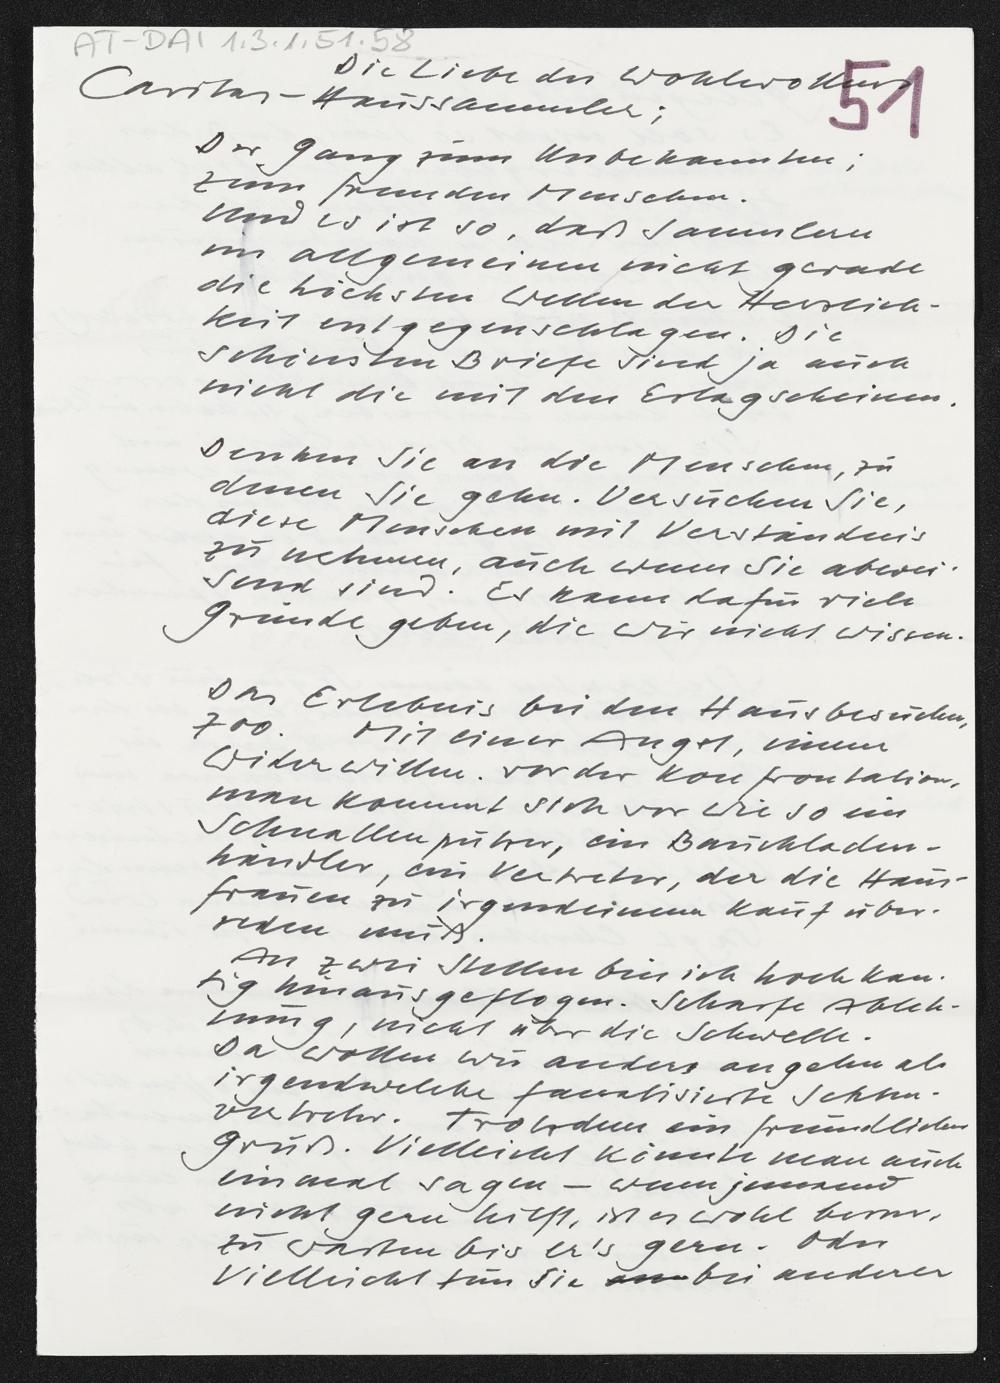 AT-DAI 1.3.1.51.58
51
Die Liebe des Wohlwollens
Caritas-Haussammler;
Der Gang zum Unbekannten;
zum fremden Menschen.
Und es ist so, daß Sammlern
im allgemeinen nicht gerade
die höchsten Wellen der Herzlich-
keit entgegenschlagen. Die
schönsten Briefe sind ja auch
nicht die mit den Erlagscheinen.
Denken Sie an die Menschen, zu
denen Sie gehn. Versuchen Sie,
diese Menschen mit Verständnis
zu nehmen, auch wenn Sie abwei-
send sind. Es kann dafür viele
Gründe geben, die wir nicht wissen.
Das Erlebnis bei den Hausbesuchen,
700. Mit einer Angst, einem
Widerwillen. vor der Konfrontation,
man kommt sich vor wie so ein
Schnallenputzer, ein Bauchladen-
händler, ein Vertreter, der die Haus-
frauen zu irgendeinem Kauf über-
reden muß.
An zwei Stellen bin ich hochkan-
tig hinausgeflogen. Scharfe Ableh-
nung, nicht über die Schwelle.
Da wollen wir anders angehen als
irgendwelche fanatisierte Sekten-
vertreter. Trotzdem ein freundlicher
Gruß. Vielleicht könnte man auch
einmal sagen – wenn jemand
nicht gern hilft, ist es wohl besser,
zu warten bis er's gern. Oder
Vielleicht tun Sie bei anderer